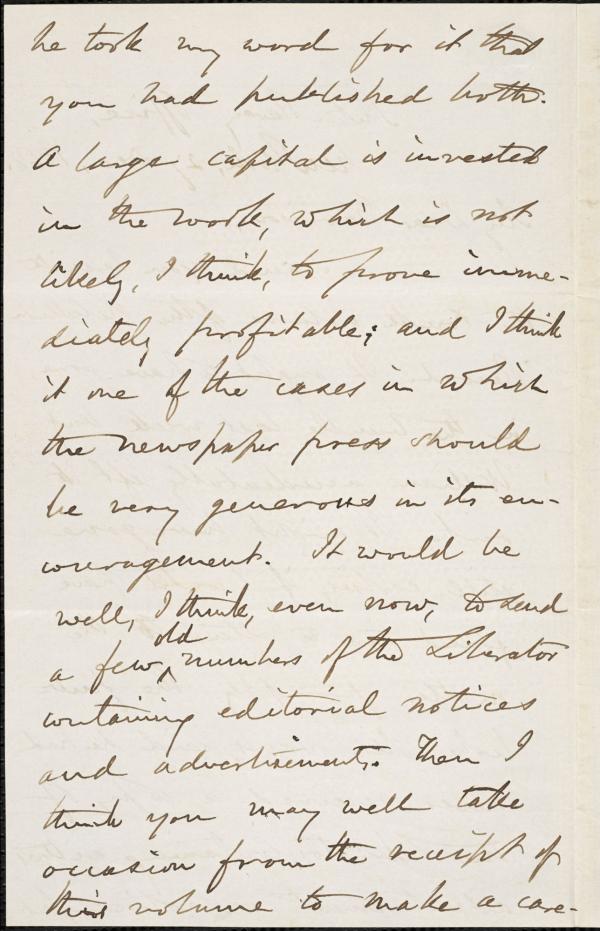 he took my word for it that
you had published both.
A large capital is invested
in the work, which is not
likely, I think, to prove imme-
diately profitable; and I think
it one of the cases in which
the newspaper press should
be very generous in its en-
couragement. It would be
well, I think, even now, to send
a few old numbers of the Liberator
containing editorial notices
and advertisements. Then I
think you may well take
occasion from the receipt of
this volume to make a care-